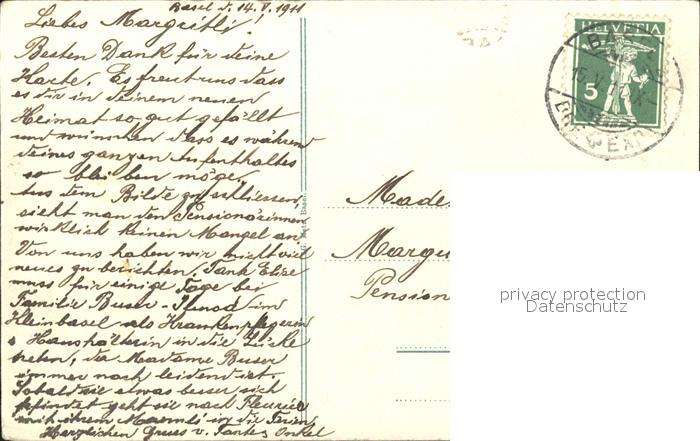 Basel d. 14. V. 1911
Liebes Margritli!
Besten Dank für deine
Karte. Es freut uns dass
es dir in deinem neuen
Heimat so gut gefällt
und wünschen dass es während
deines ganzen Aufenthaltes
so bleiben möge.
Aus dem Bilde zu schliessen,
sieht man den Pensionärinnen
wirklich keinen Mangel an.
Von uns haben wir nicht viel
neues zu berichten. Tante Elise
muss für einige Tage bei
Familie Buser- im
Kleinbasel als Krankenpflegerin
& Haushälterin in die Lücke
treten, da Madame Buser
immer noch leidend ist.
Sobald sie etwas besser sich
befindet geht sie nach Fleurier
mit ihrem in die Ferien
Herzlichen Gruss v. Tante & Onkel
HELVETIA
5
BASEL
15. V.
BRF. EXP.
Basel
Made
Margu
Pension
privacy protection
Datenschutz